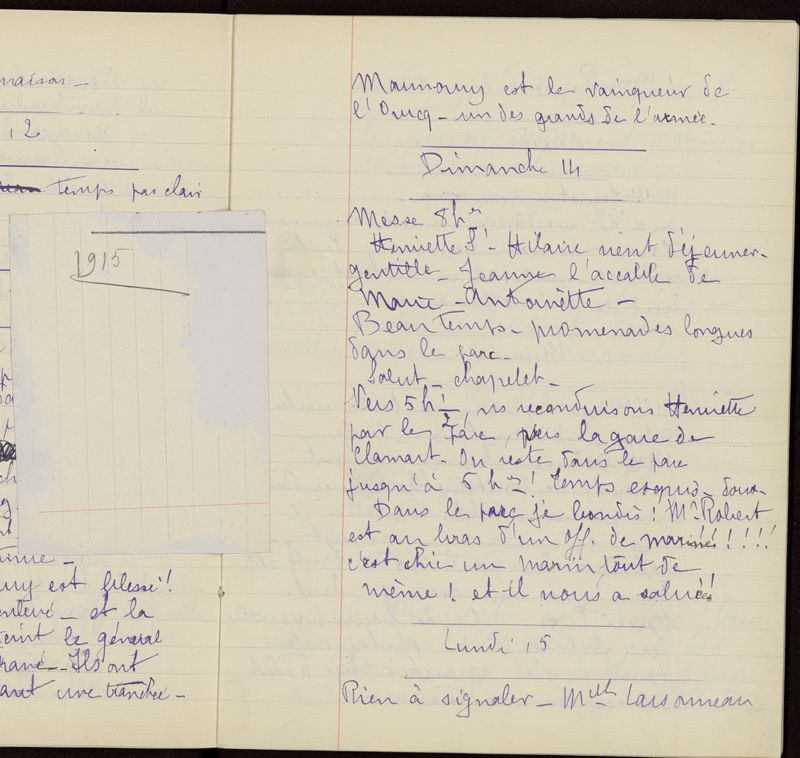 maison_
12
temps pas clair
1915
est blessé!
et la
le général
Ils ont
une tranchée_
Maunoury est le vainqueur de
l'Ourcq_ un des grands de l'armée.
Dimanche 14
Messe 8hres
Henriette St-Hilaire vient déjeuner_
gentille_ Jeanne l'accable de
Marie-Antoinette_
Beau temps_ promenades longues
dans le parc_
Salut_ chapelet_
Vers 5h 1/2, ns reconduisons Henriette
par le parc, vers la gare de
Clamart_ On reste dans le parc
jusqu'à 6hres! temps exquis_ doux_
Dans le parc je bondis! Mr Robert
est au bras d'un off. de marine!!!!!
c'est chic un marin tout de
même! et il nous a salués!
Lundi 15
Rien à signaler_ Melle Larsonneau